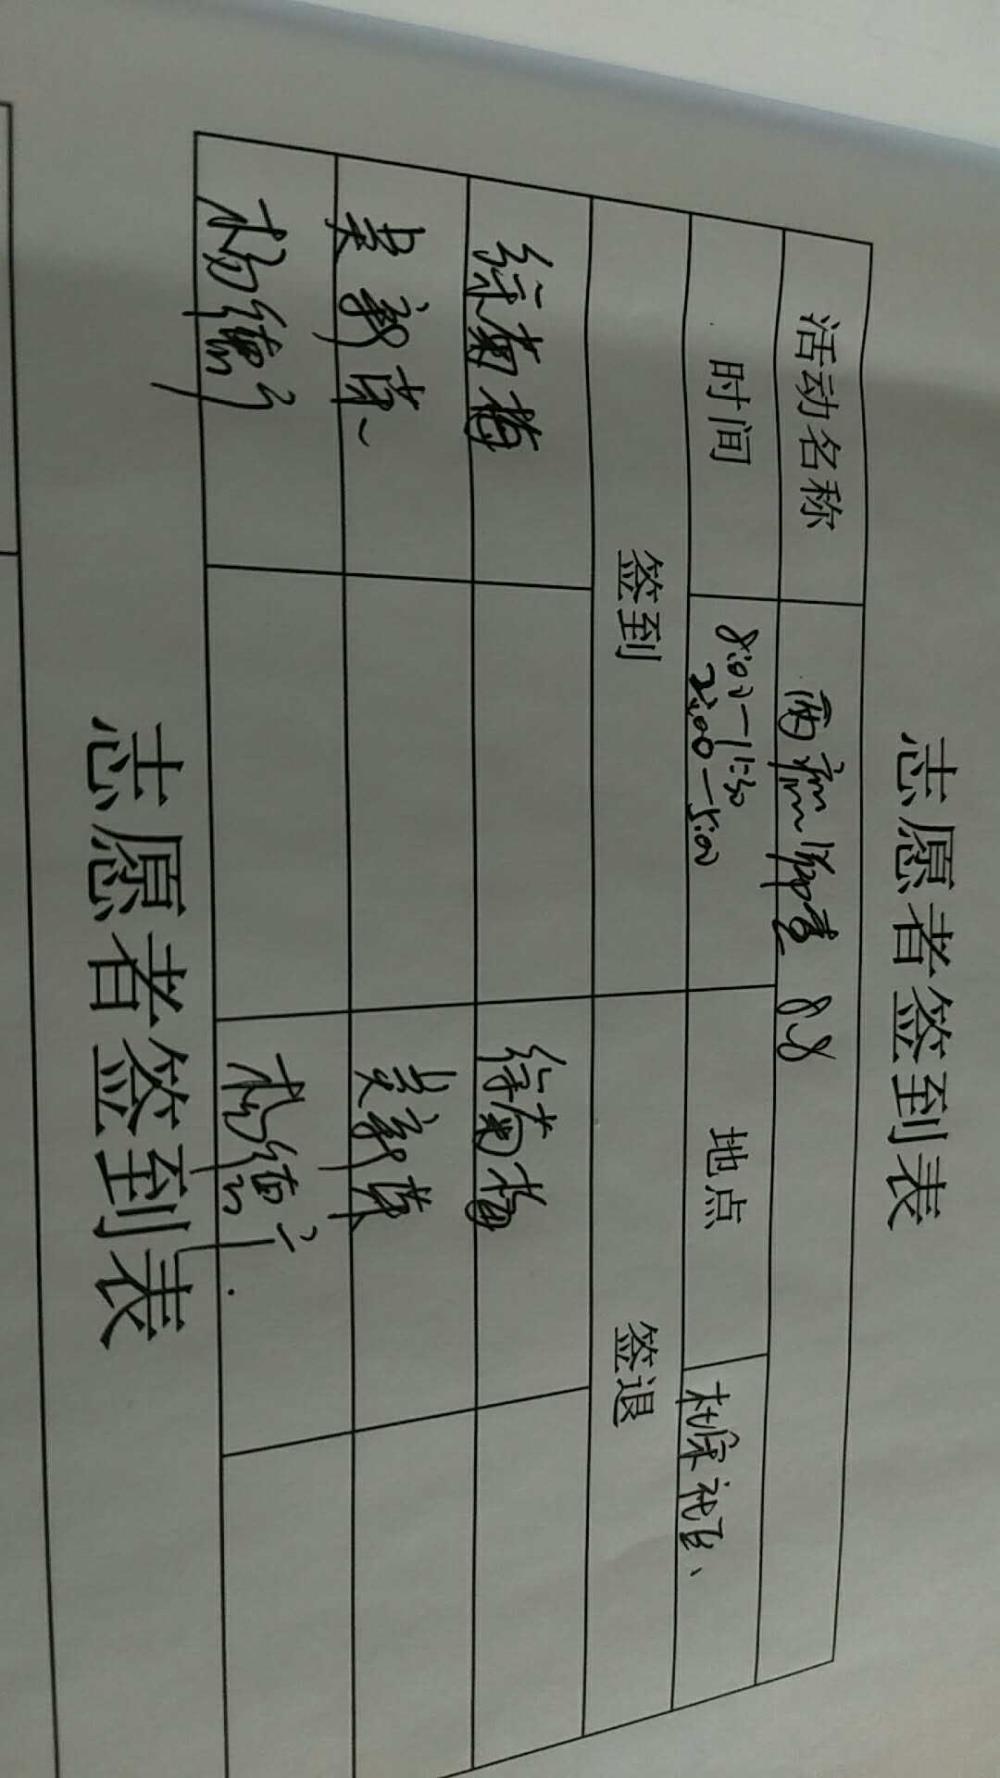 志愿者签到表
活动名称 两病筛查 8.8
时间 8:00-11:30 2:00-5:00 地点 杜家社区、
签到 签退
徐菊梅 徐菊梅
吴新
杨德 杨德
志愿者签到表